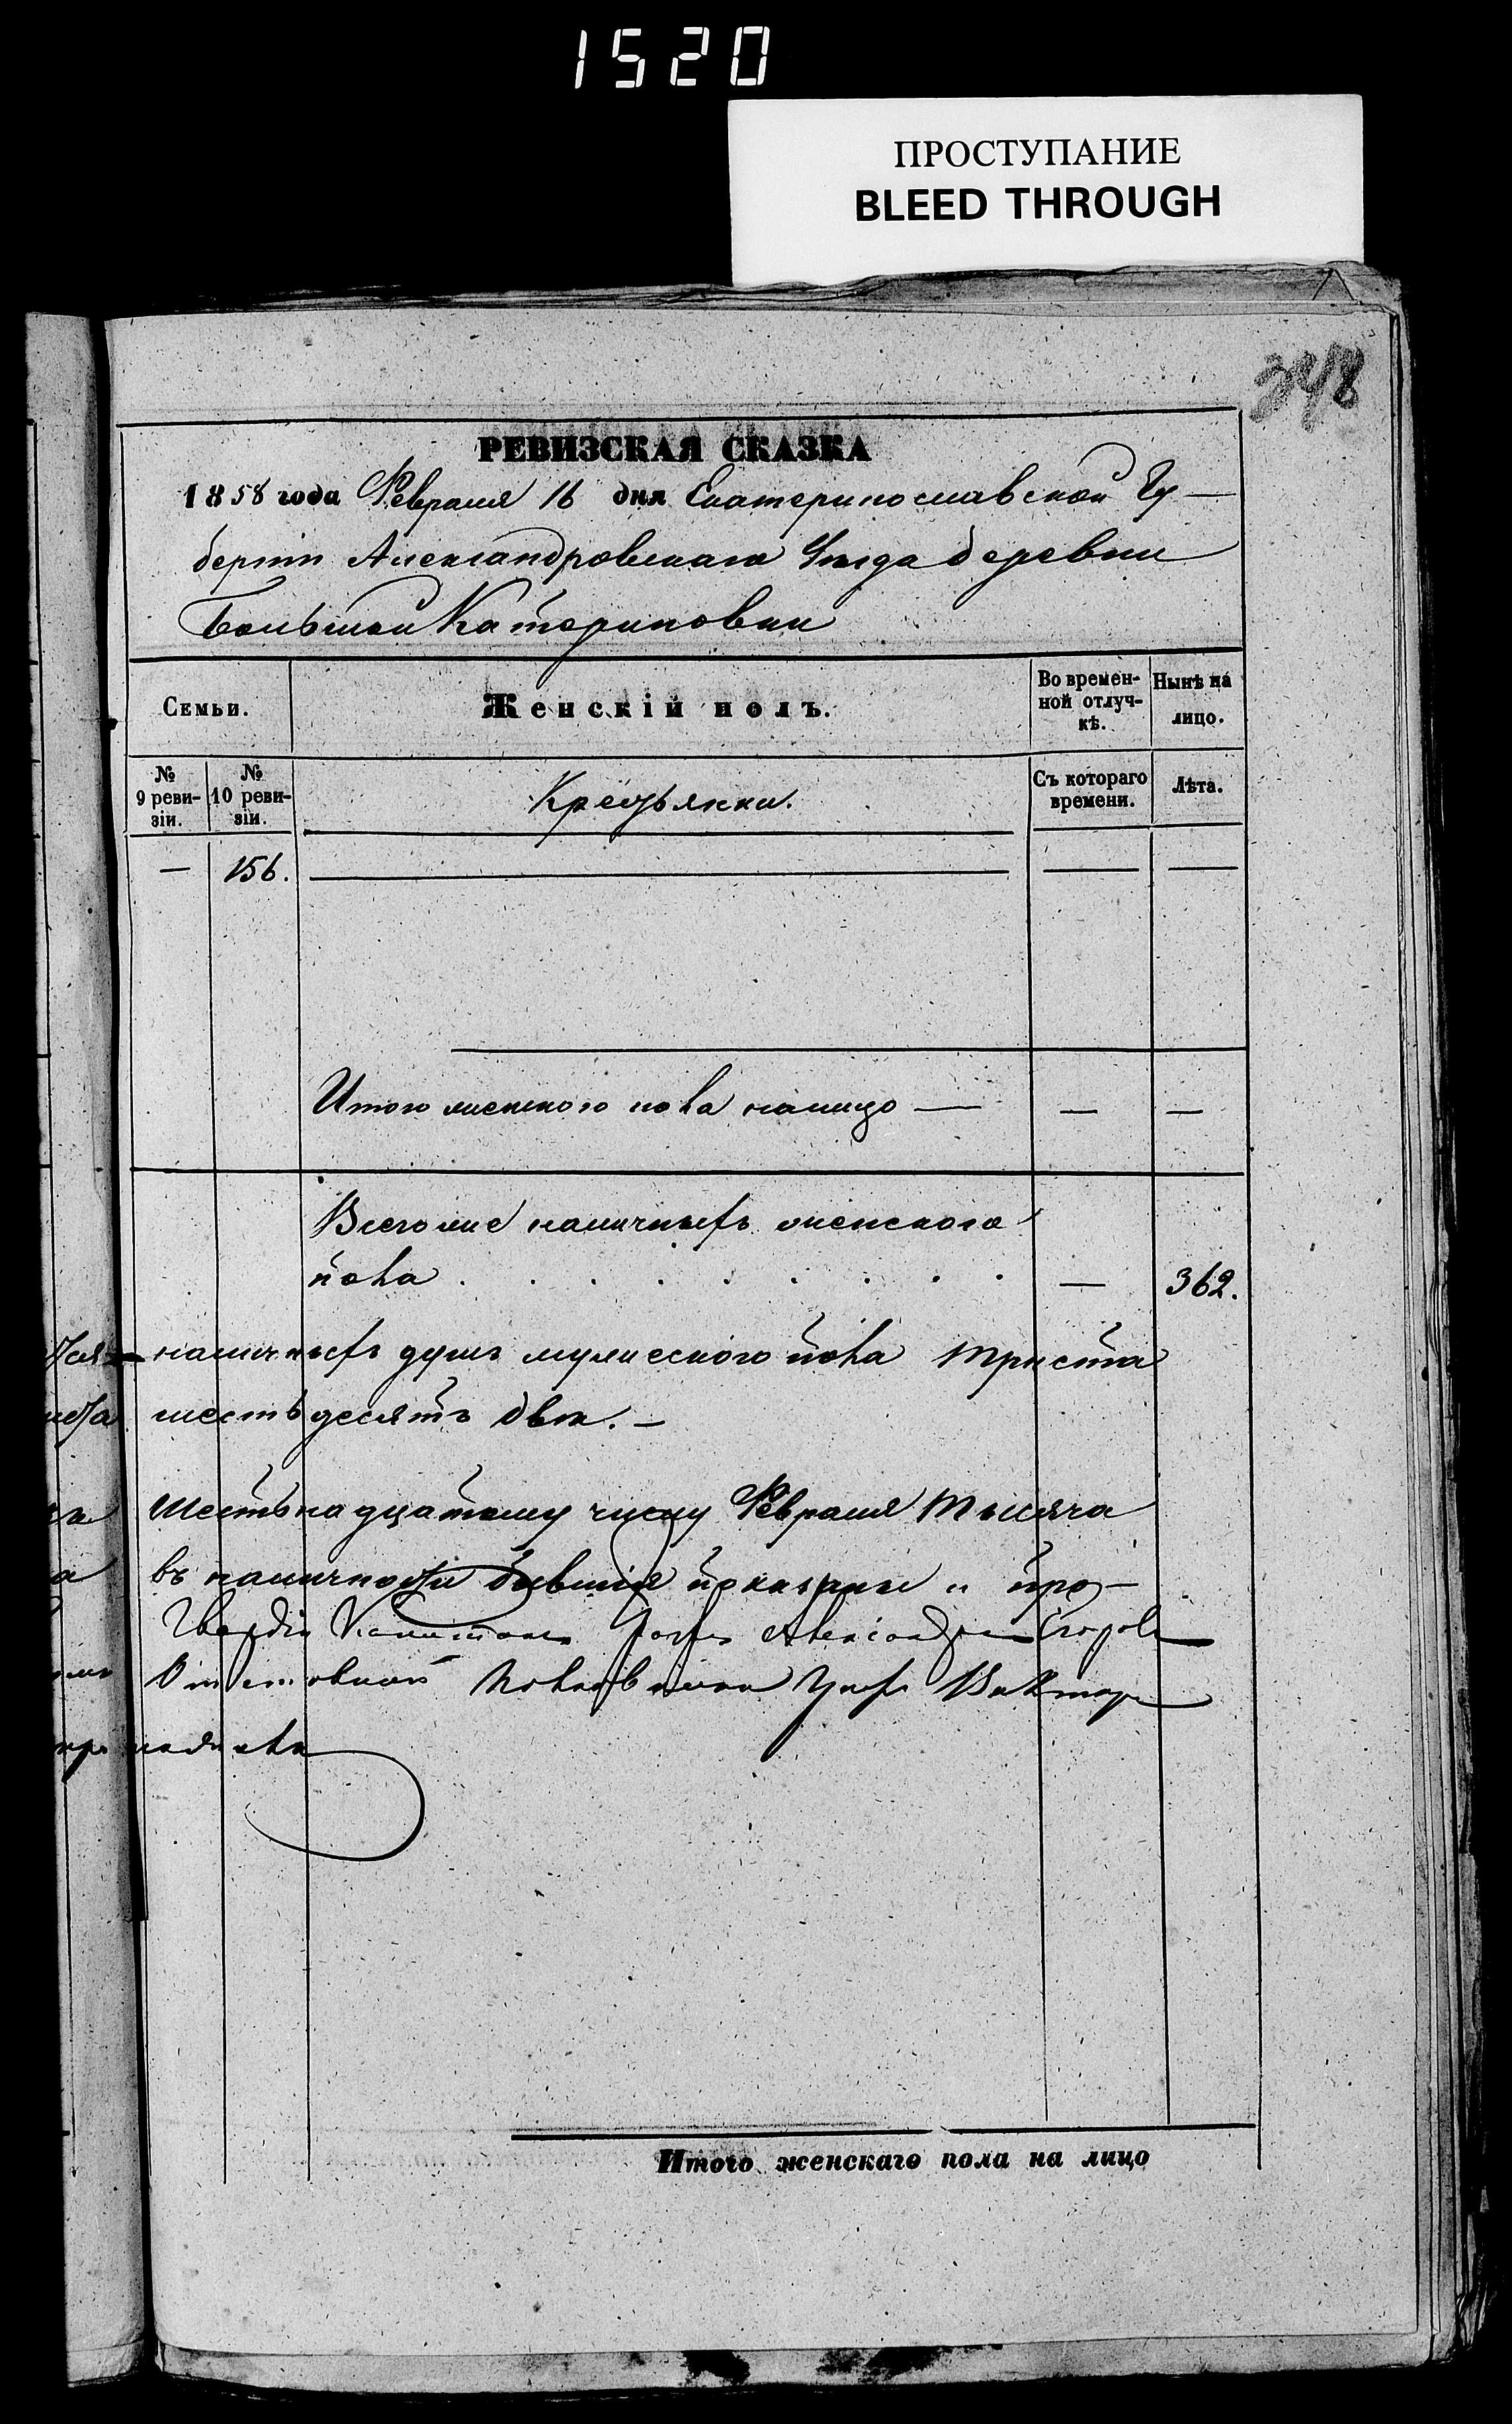 1520
ПРОСТУПАНИЕ
BLEED THROUGH
348
РЕВИЗСКАЯ СКАЗКА
1858 года Февраля 16 дня Екатеринославской Гу-
берніи Александровскаго Уѣзда деревни
Большой Катериновки
Семьи.
Женскій полъ.
Во времен-
ной отлуч-
кѣ.
Нынѣ на
лицо.
№
9 реви-
зіи.
№
10 реви-
зіи.
Крестьянки.
Съ котораго
времени.
Лѣта.
— 156. — — —
Итого женского пола налицо — — —
Всего же наличныхъ женского
пола . . . . . . . . . — 362.
наличныхъ душъ мужеского пола триста
шестьдесятъ двѣ. —
Шестьнадцатому числу Февраля тысяча
въ наличности бывшія показаны и про-
Гвардіи Капитана Александра Егорова
Виктора
Итого женскаго пола на лицо